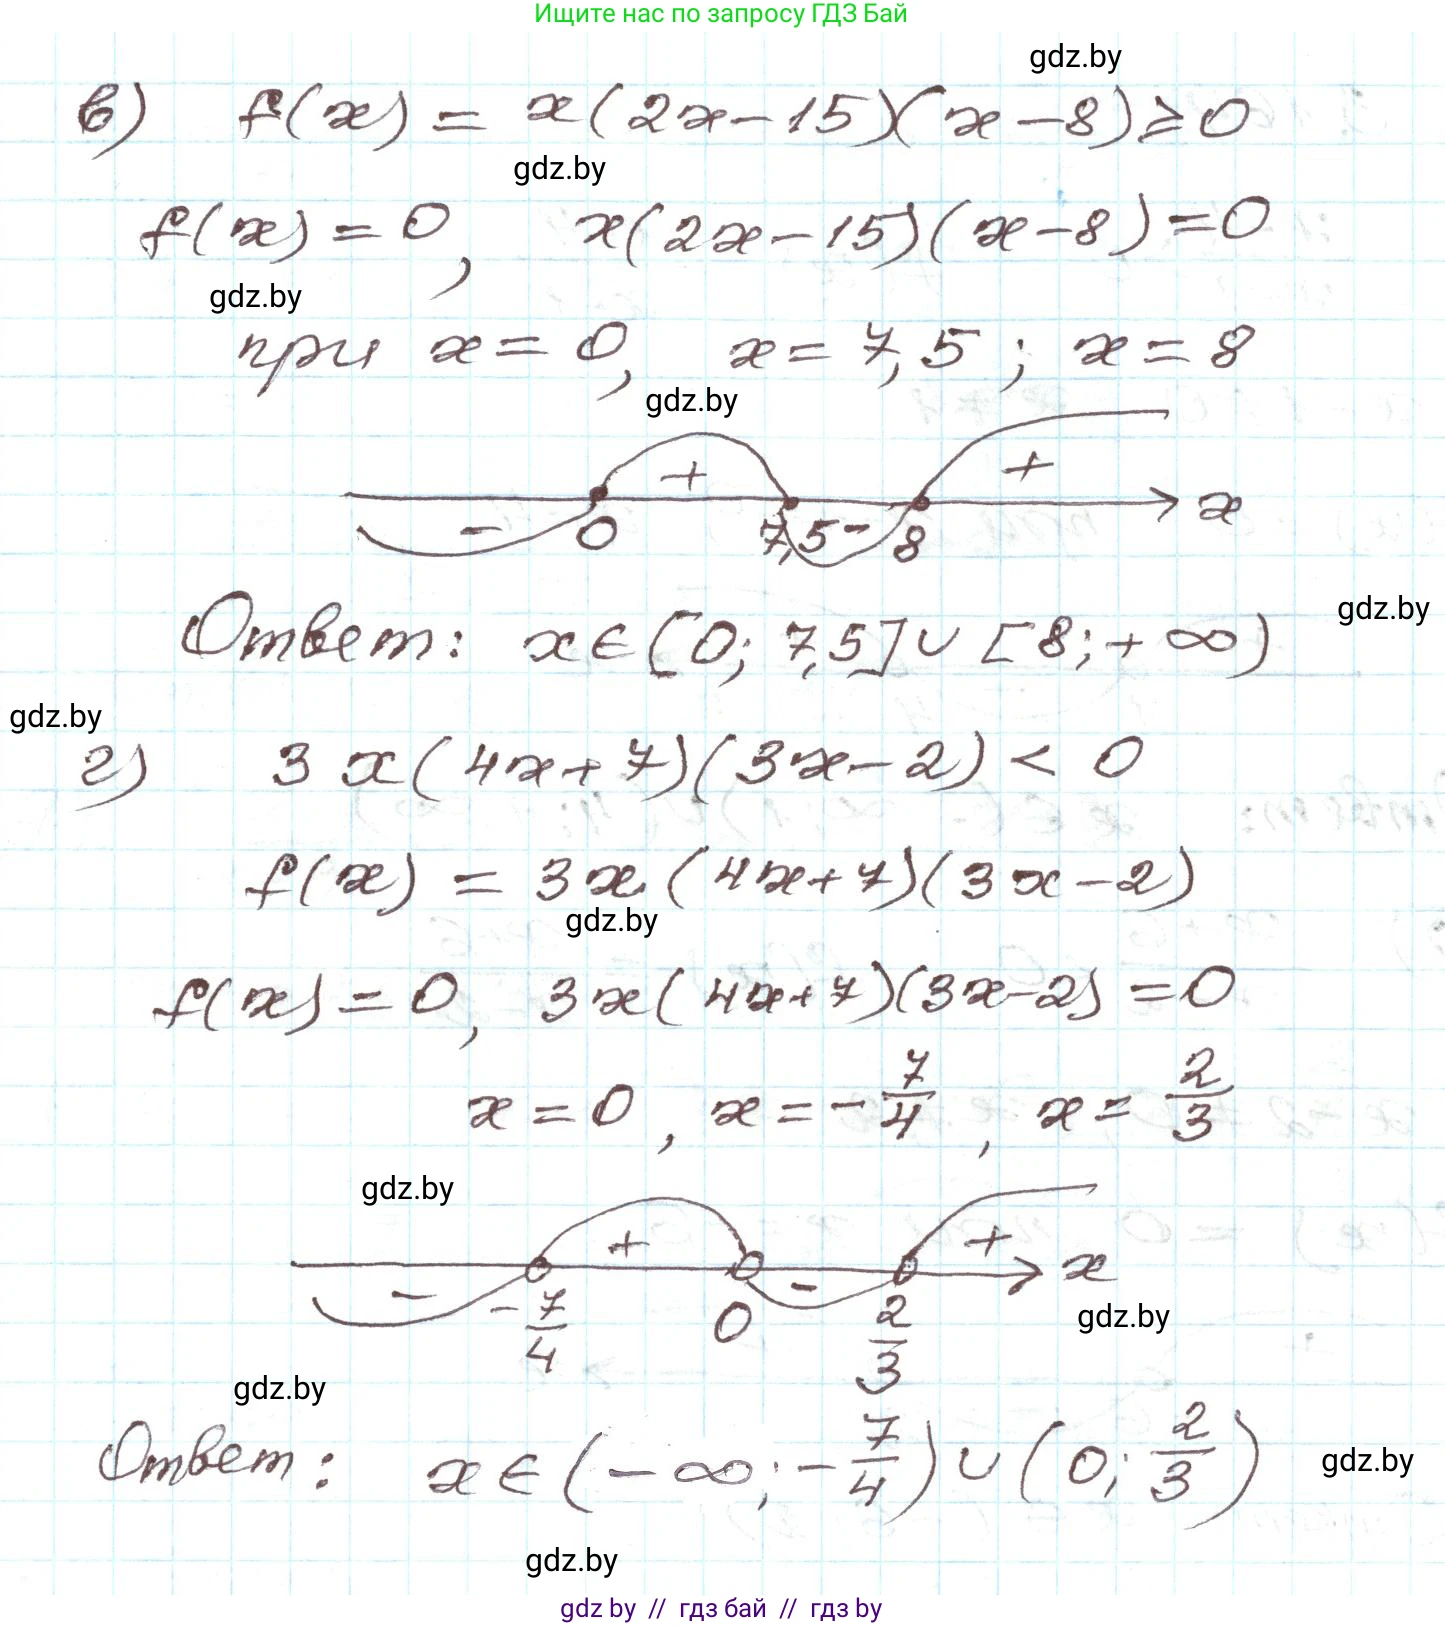 Ищите нас по запросу ГДЗ Бай
gdz.by
в) f(x) = x(2x-15)(x-8)≥0
gdz.by
f(x)=0, x(2x-15)(x-8)=0
gdz.by
при x=0, x=7,5; x=8
gdz.by
+ +
x
- 0 7,5 - 8
Ответ: x∈[0; 7,5]∪[8;+∞)
gdz.by
gdz.by
г) 3x(4x+7)(3x-2)<0
f(x) = 3x.(4x+7)(3x-2)
gdz.by
f(x)=0, 3x(4x+7)(3x-2)=0
x=0, x=-7/4, x=2/3
gdz.by
+ +
x
- -7/4 0 - 2/3
gdz.by
gdz.by
Ответ: x∈(-∞;-7/4)∪(0;2/3)
gdz.by
gdz.by
gdz by // гдз бай // гдз by